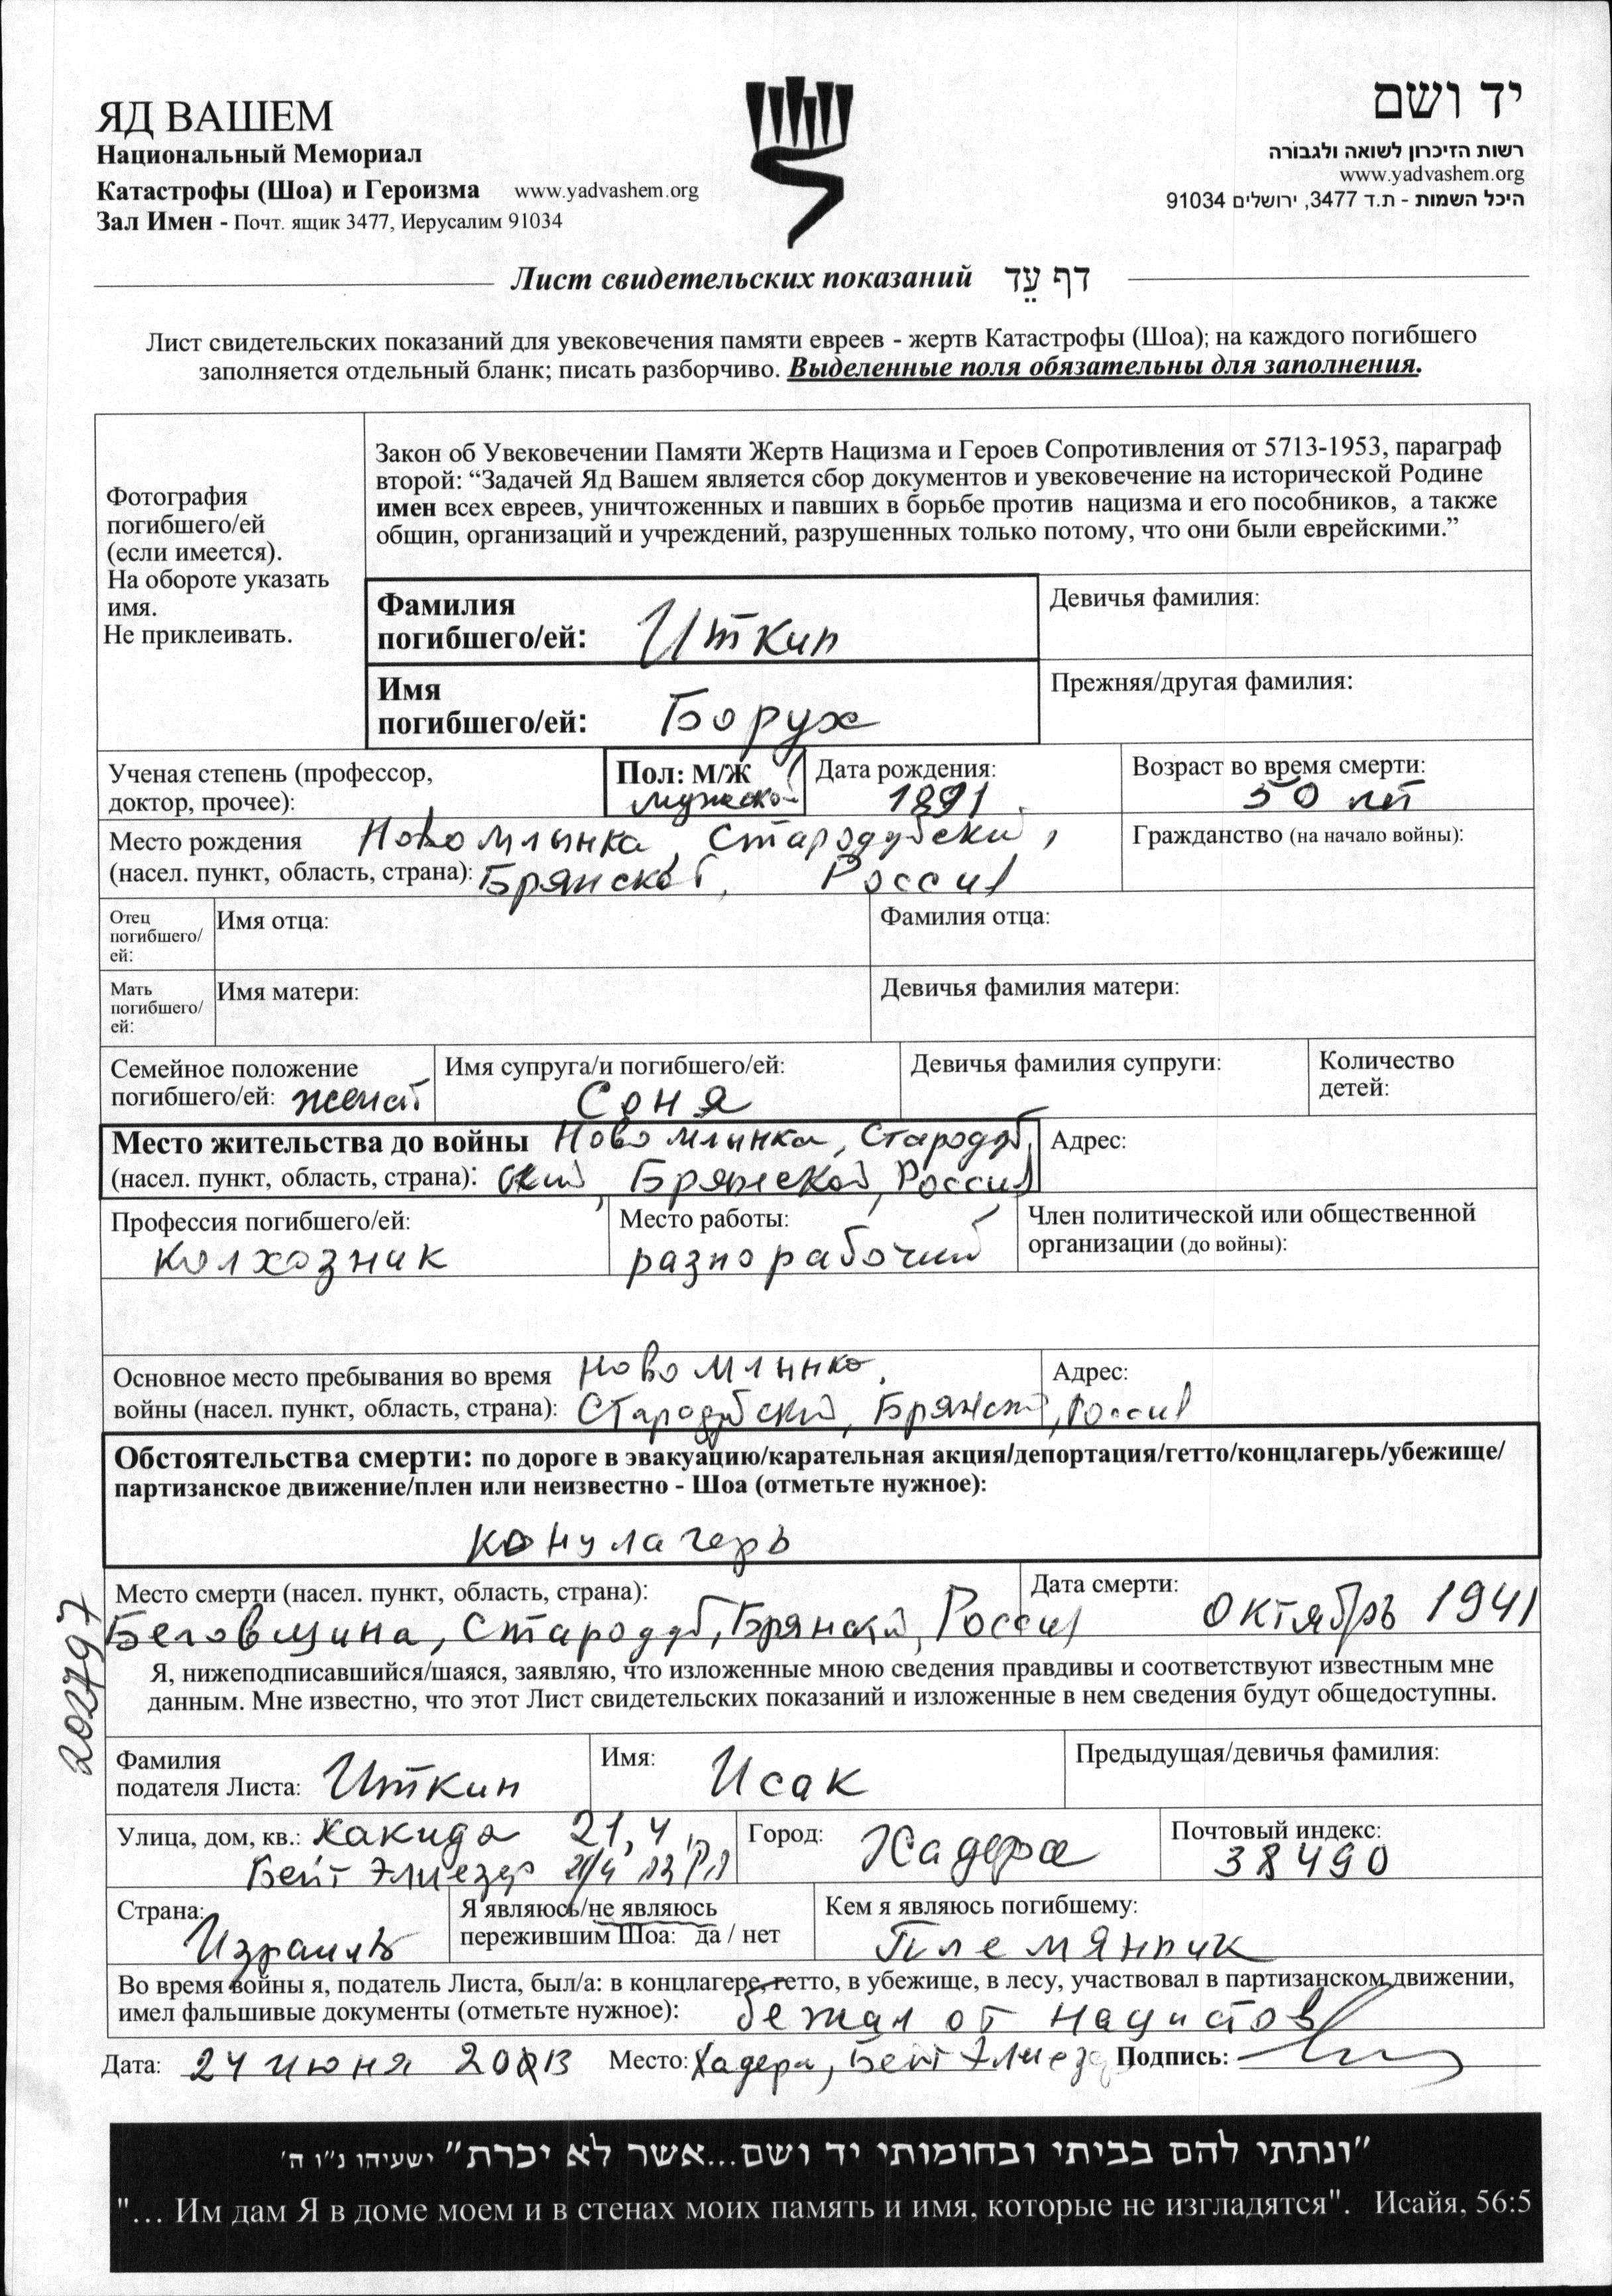 ЯД ВАШЕМ
Национальный Мемориал
Катастрофы (Шоа) и Героизма www.yadvashem.org
Зал Имен - Почт. ящик 3477, Иерусалим 91034
יד ושם
רשות הזיכרון לשואה ולגבורה
www.yadvashem.org
היכל השמות - ת.ד 3477, ירושלים 91034
Лист свидетельских показаний דף עֵד
Лист свидетельских показаний для увековечения памяти евреев - жертв Катастрофы (Шоа); на каждого погибшего
заполняется отдельный бланк; писать разборчиво. Выделенные поля обязательны для заполнения.
Фотография
погибшего/ей
(если имеется).
На обороте указать
имя.
Не приклеивать.
Закон об Увековечении Памяти Жертв Нацизма и Героев Сопротивления от 5713-1953, параграф
второй: “Задачей Яд Вашем является сбор документов и увековечение на исторической Родине
имен всех евреев, уничтоженных и павших в борьбе против нацизма и его пособников, а также
общин, организаций и учреждений, разрушенных только потому, что они были еврейскими.”
Фамилия
погибшего/ей: Иткин
Девичья фамилия:
Имя
погибшего/ей: Борух
Прежняя/другая фамилия:
Ученая степень (профессор,
доктор, прочее):
Пол: М/Ж
мужской
Дата рождения:
1891
Возраст во время смерти:
50 лет
Место рождения Ново Млынка, Стародубский,
(насел. пункт, область, страна): Брянской, Россия
Гражданство (на начало войны):
Отец
погибшего/
ей:
Имя отца:
Фамилия отца:
Мать
погибшего/
ей:
Имя матери:
Девичья фамилия матери:
Семейное положение
погибшего/ей: женат
Имя супруга/и погибшего/ей:
Соня
Девичья фамилия супруги:
Количество
детей:
Место жительства до войны Ново Млынка, Стародуб
(насел. пункт, область, страна): ский, Брянской, Россия
Адрес:
Профессия погибшего/ей:
Колхозник
Место работы:
разнорабочий
Член политической или общественной
организации (до войны):
Основное место пребывания во время Ново Млынка,
войны (насел. пункт, область, страна): Стародубский, Брянской, Россия
Адрес:
Обстоятельства смерти: по дороге в эвакуацию/карательная акция/депортация/гетто/концлагерь/убежище/
партизанское движение/плен или неизвестно - Шоа (отметьте нужное):
концлагерь
Место смерти (насел. пункт, область, страна):
Беловщина, Стародуб, Брянской, Россия
Дата смерти: октябрь 1941
202797
Я, нижеподписавшийся/шаяся, заявляю, что изложенные мною сведения правдивы и соответствуют известным мне
данным. Мне известно, что этот Лист свидетельских показаний и изложенные в нем сведения будут общедоступны.
Фамилия
подателя Листа: Иткин
Имя: Исак
Предыдущая/девичья фамилия:
Улица, дом, кв.: Хакида 21, 4,
Бейт Элиезер 21/4
Город: Хадера
Почтовый индекс:
38490
Страна:
Израиль
Я являюсь/не являюсь
пережившим Шоа: да / нет
Кем я являюсь погибшему:
Племянник
Во время войны я, податель Листа, был/а: в концлагере, гетто, в убежище, в лесу, участвовал в партизанском движении,
имел фальшивые документы (отметьте нужное): бежал от нацистов
Дата: 24 июня 2013 Место: Хадера, Бейт Элиезер Подпись:
"ונתתי להם בביתי ובחומותי יד ושם...אשר לא יכרת" ישעיהו נ"ו ה'
"... Им дам Я в доме моем и в стенах моих память и имя, которые не изгладятся". Исайя, 56:5